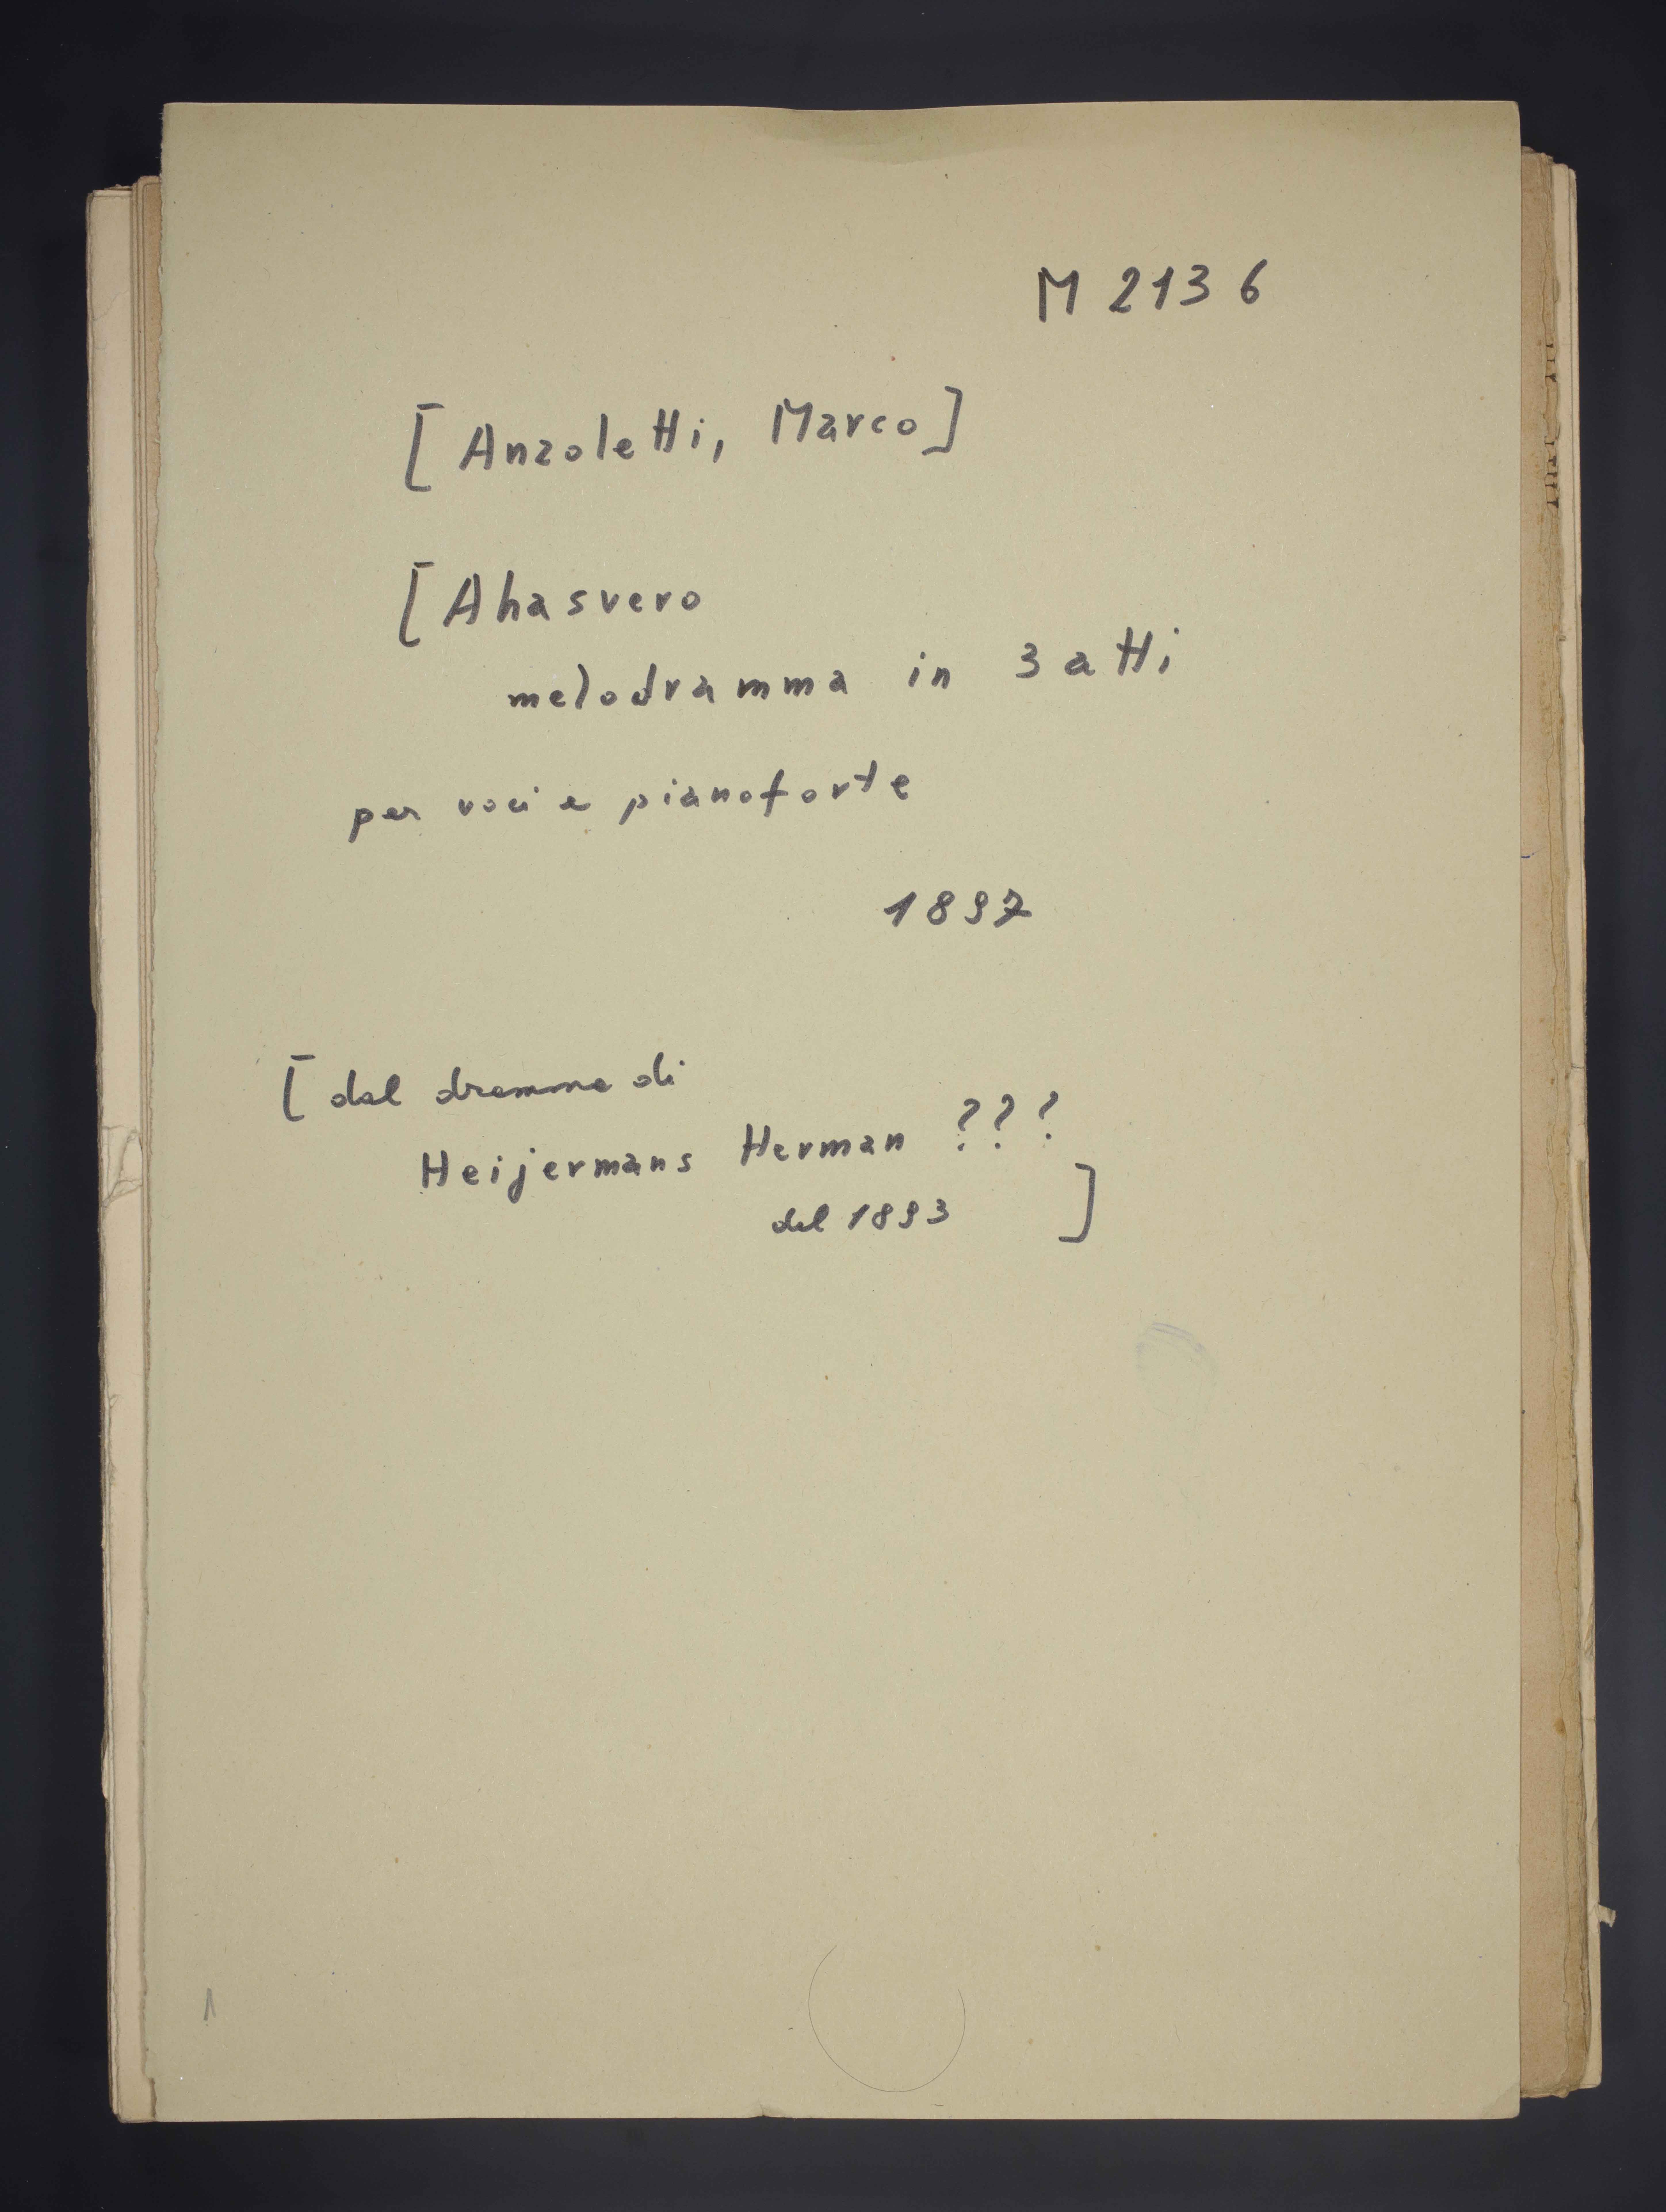 M 2136
[Anzoletti, Marco]
[Ahasvero
melodramma in 3 atti
per voci e pianoforte
1897
[dal dramma di
Heijermans Herman ???
del 1893 ]
1